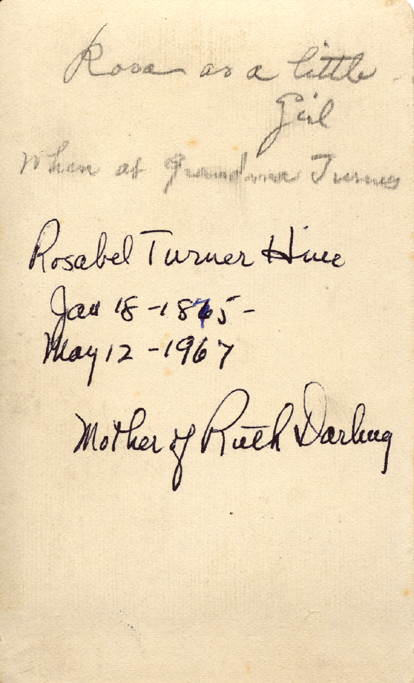 Rosa as a little
Girl
When at Grandma Turners
Rosabel Turner Hine
Jan 18 - 1875 -
May 12 - 1967
Mother of Ruth Darling